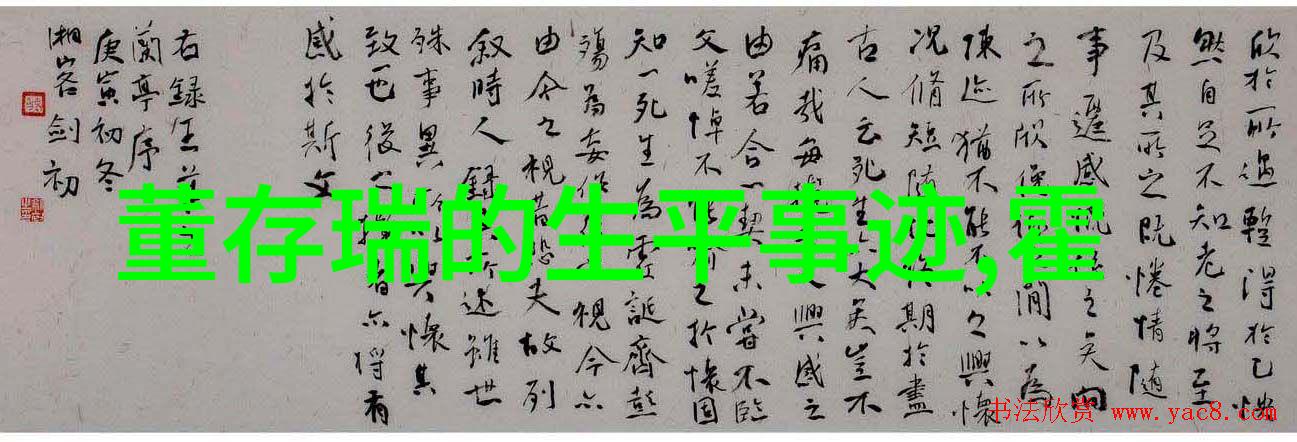 欣於所遇暫得於己快
然自足不知老之將至
及其所之既惓情隨
事遷感之矣向
之所欣間以為
陳迹猶不能不以之興懷
況脩短隨化終期於盡
古人云死生大矣豈不
痛哉每興感之
由若合一契未嘗不臨
文嗟悼不能之於懷固
知一死生為虛誕齊彭
殤為妄作視今亦
由今之視昔悲夫故列
敘時人錄所述雖世
殊事異所以興懷其
致一也後之者亦將有
感於斯文
右錄王羲
蘭亭序
庚寅初冬
湘客劍初
董存瑞的生平事迹,霍
书法欣赏 www.yac8.com